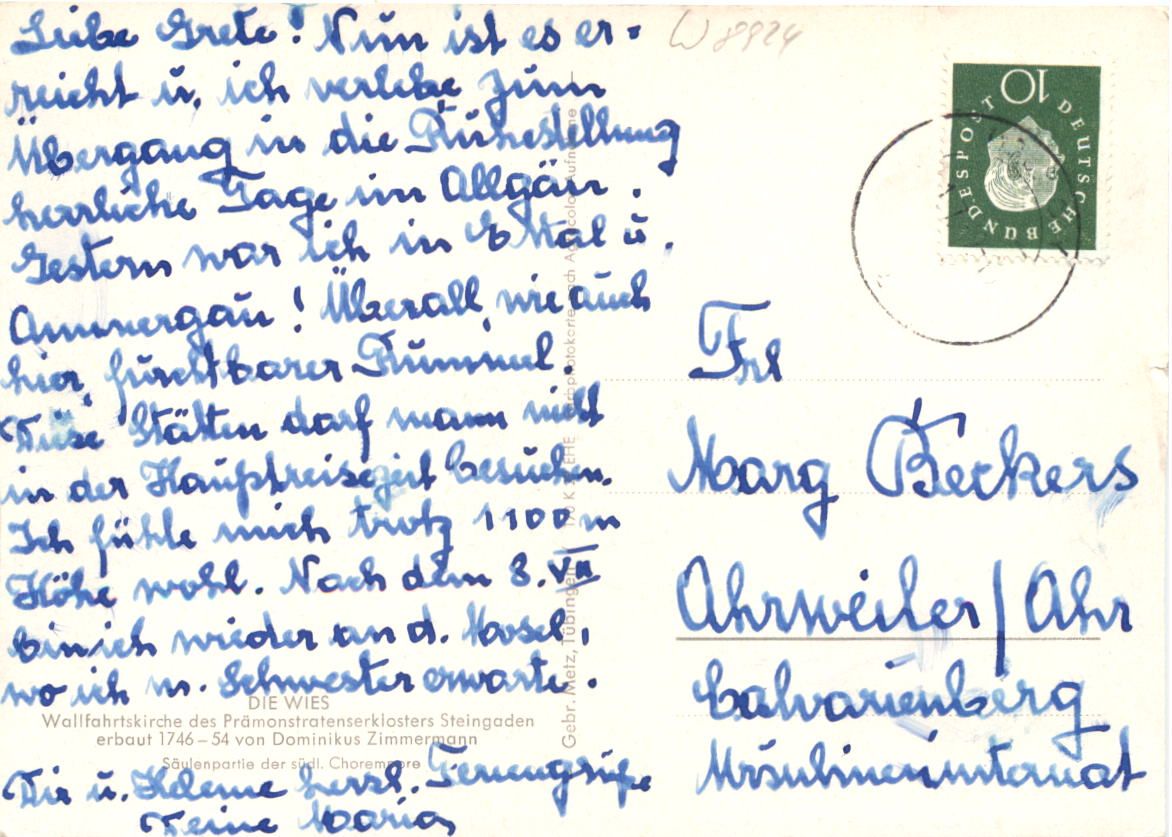 Liebe Grete! Nun ist es er=
reicht u. ich verlebe zum
Übergang in die Ruhestellung
herrliche Tage im Allgäu.
Gestern war ich in Ettal u.
Ammergau! Überall, wie auch
hier, furchtbarer Rummel.
Diese Stätten darf man nicht
in der Hauptreisezeit besuchen.
Ich fühle mich trotz 1100 m
Höhe wohl. Nach dem 8. VII
bin ich wieder an d. Mosel,
wo ich m. Schwester erwarte.
DIE WIES
Wallfahrtskirche des Prämonstratenserklosters Steingaden
erbaut 1746–54 von Dominikus Zimmermann
Säulenpartie der südl. Chorempore
Dir u. Helene herzl. Feriengrüße
Deine Maria
Gebr. Metz, Tübingen
W 8924
10
DEUTSCHE BUNDESPOST
Frl
Marg Beckers
Ahrweiler/Ahr
Calvarienberg
Ursulineninternat